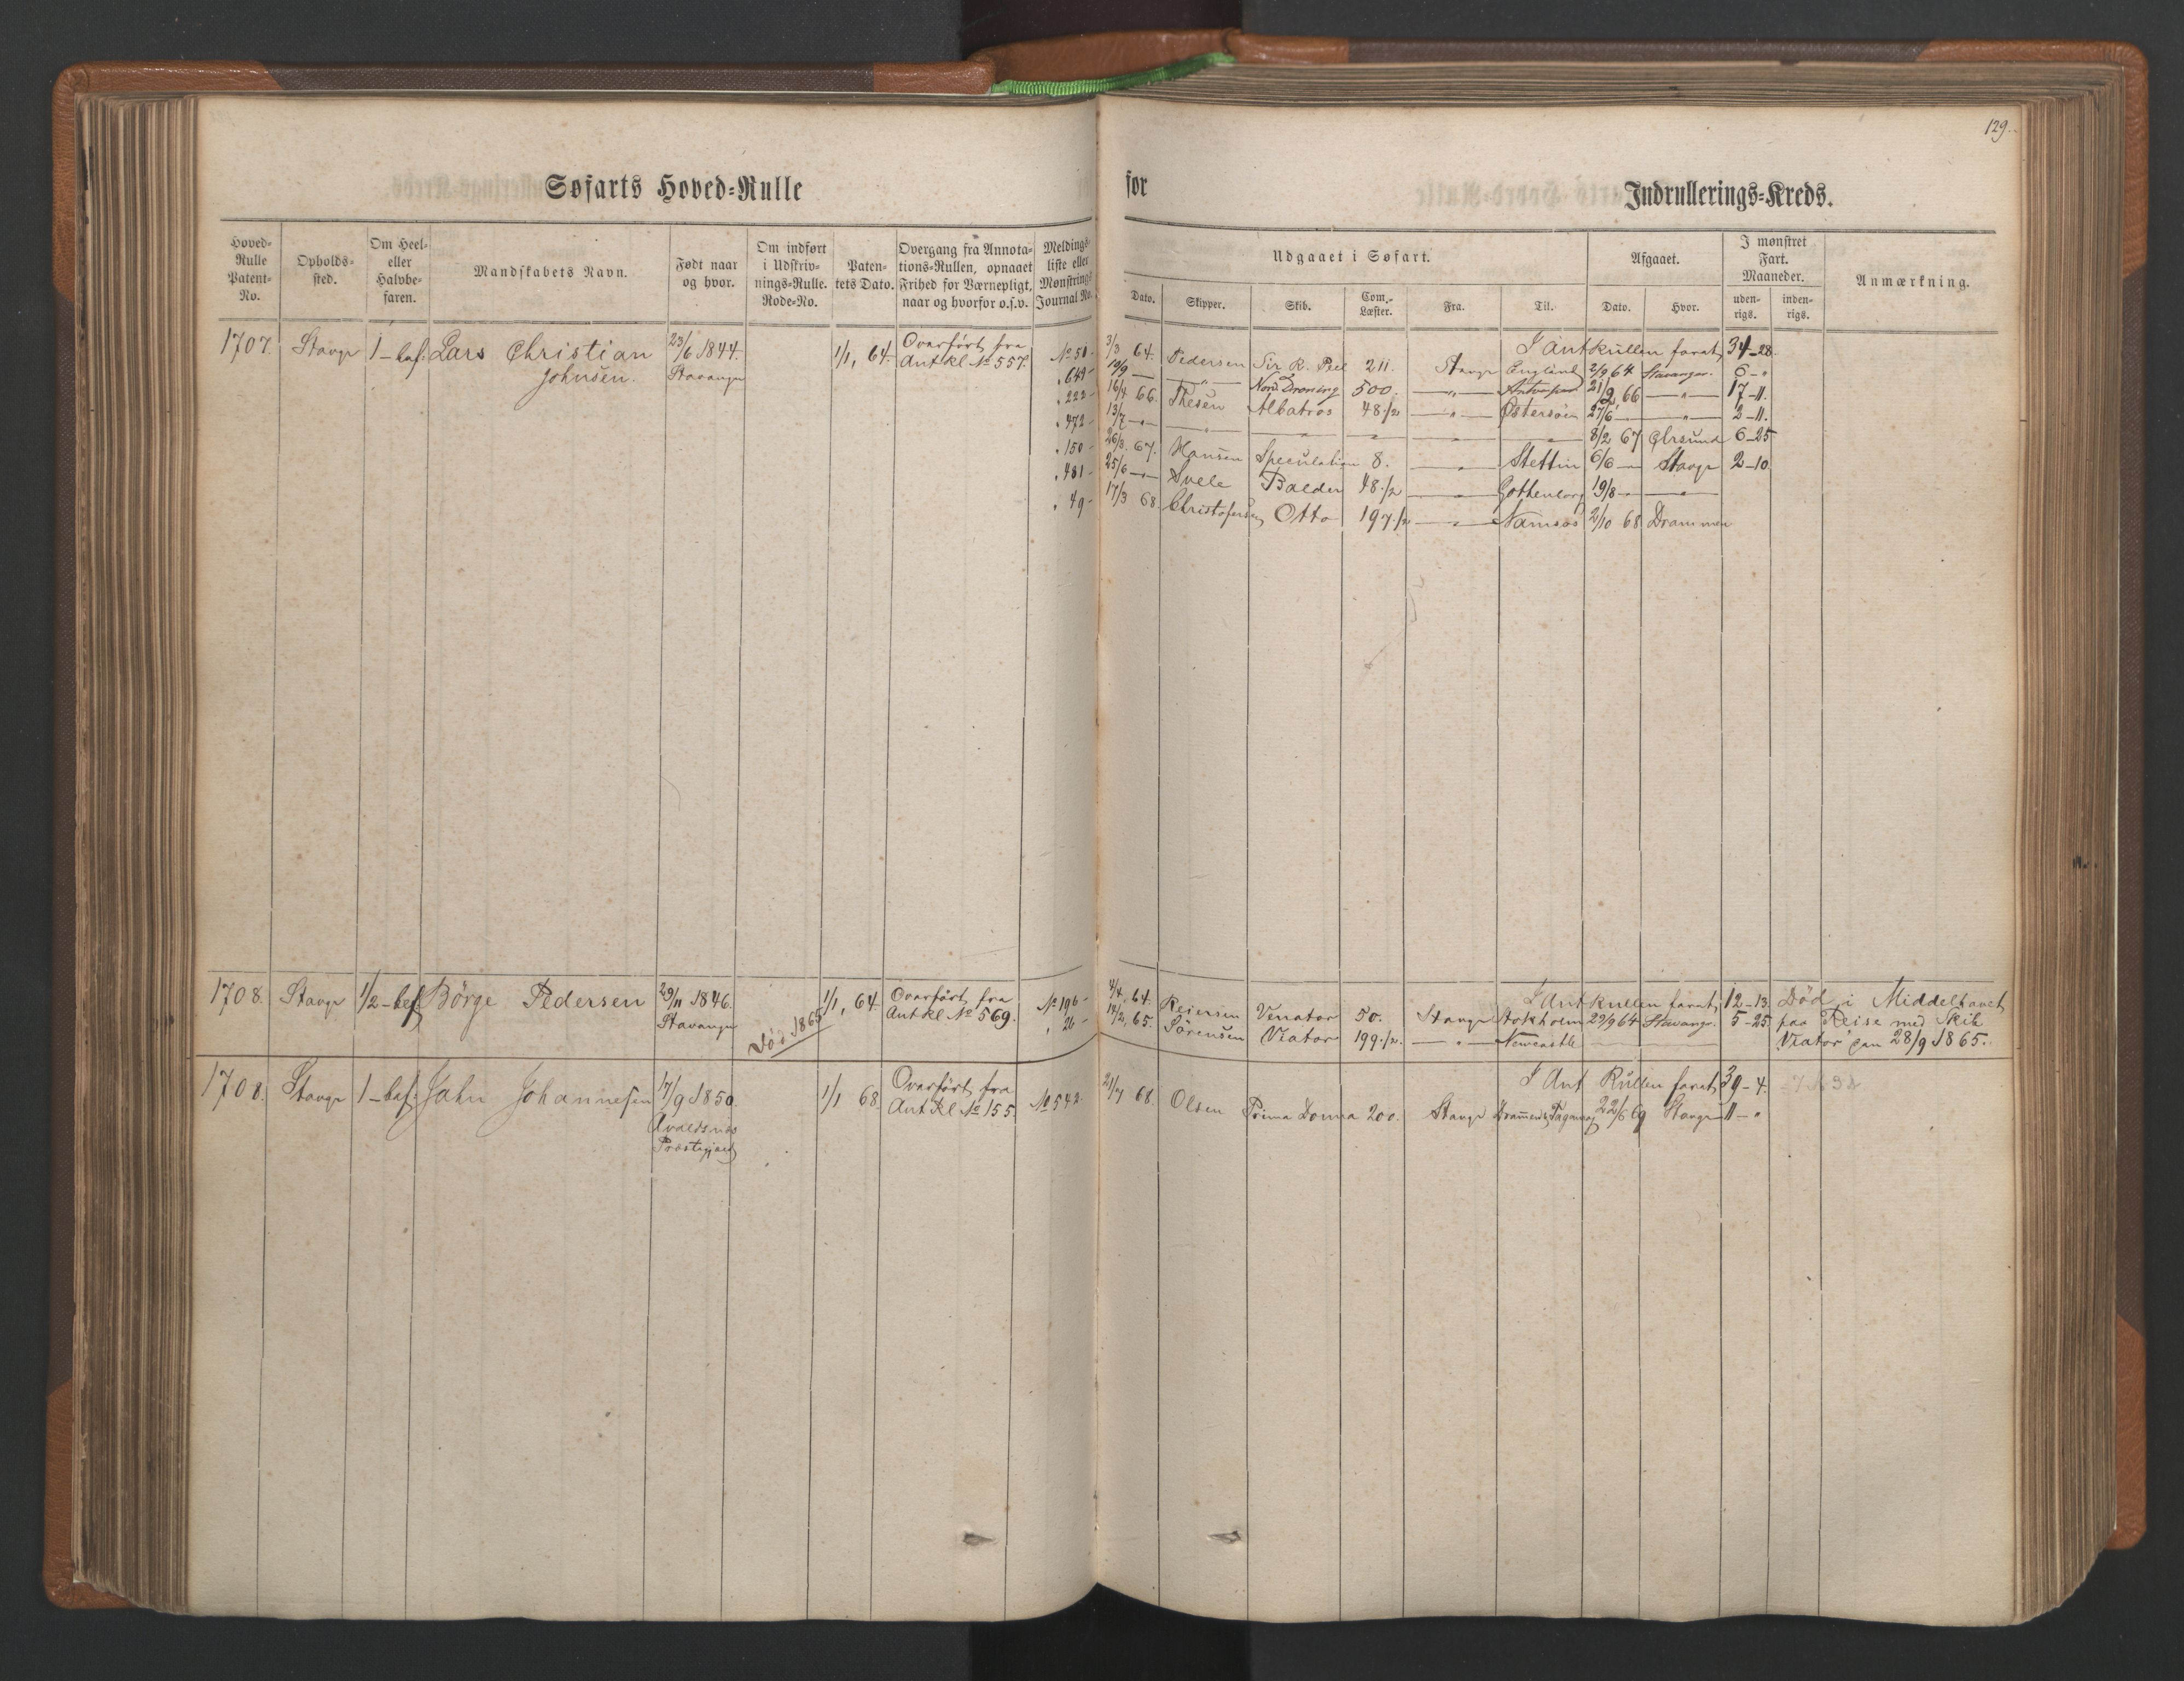 129.
Søfarts Hoved-Rulle
for
Indrullerings-Kreds.
Hoved-Rulle Patent-No.
Opholds-sted.
Om Heel- eller Halvbe-faren.
Mandskabets Navn.
Født naar og hvor.
Om indført i Udskriv-nings-Rulle. Rode-No.
Paten-tets Dato.
Overgang fra Annota-tions-Rullen, opnaaet Frihed for Værnepligt, naar og hvorfor o.s.v.
Meldings-liste eller Mønstrings-Journal No.
Udgaaet i Søfart.
Afgaaet.
I mønstret Fart. Maaneder.
Anmærkning.
Dato. Skipper. Skib. Com.-Læster. Fra. Til. Dato. Hvor. uden-rigs. inden-rigs.
1707. Stavgr 1-bef. Lars Christian 23/6 1844. 1/1, 64. Overført fra
Johnsen. Stavanger Ant Rl No 557.
I Antrullen faret 34-28.
No 50- 3/3 64. Pedersen Sir R. Peel 211. Stavgr England 2/9 64 Stavanger. 6-"
" 649- 10/9 — — " — Nord. Dronning 500. — " — 21/2 66 — " — 17-11.
" 222- 16/4 66. Thesen Albatros 48 1/2 — " — Østersøen 27/6 — " — 2-11.
" 472- 13/7 — " — — " — — " — — " — — " — — " — 8/2 67 Egersund 6-25
" 150- 26/3 67. Hansen Speculation 8. — " — Stettin 6/6 — " Stavgr 2-10.
" 481- 25/6 — " — Svele Balder 48 1/2 — " — Gothenborg 19/8 — " — " —
" 49- 17/3 68. Christofersen Otto 197 1/2 — " — Namsos 2/10 68 Drammen
1708. Stavgr 1/2-bef Börge Pedersen 29/11 1846. 1/1, 64. Overført fra
Stavanger Ant Rl No 569.
Död 1865
I Antrullen faret 12-13. Död i Middelhavet
No 196- 4/4, 64. Reiersen Venator 50. Stavgr Stokholm 29/9 64 Stavanger. 5-25. paa Reise med Skib
" 26- 14/2, 65. Sörensen Viator 199 1/2. — " — Newcastle Viator den 28/9 1865.
1708. Stavgr 1-bef. Jahn Johannesen 17/9 1850. 1/1 68. Overført fra
Avaldsnes Ant Rl No 155.
Præstegjæld
I Ant Rullen faret 39-4.
No 542- 21/7 68. Olsen Prima Donna 200. Stavgr 22/6 69 Stavgr 11-"